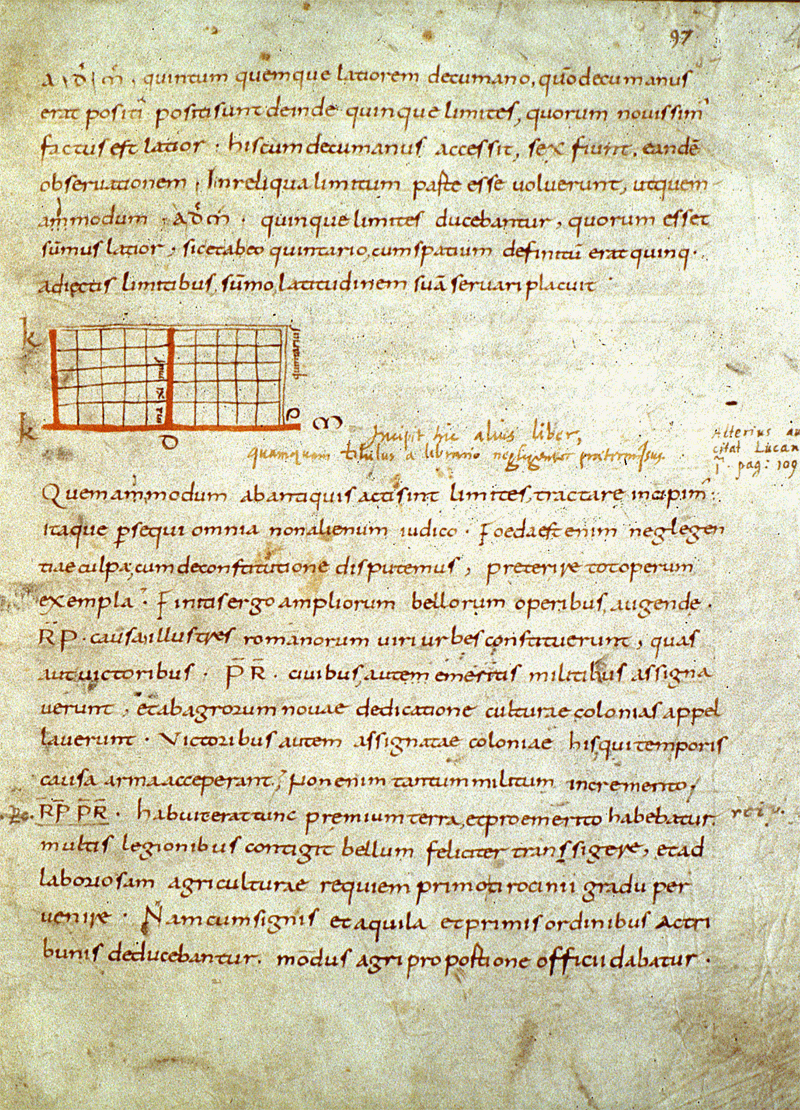 97
a · d̄ · m̄ · quintum quemque latiorem decumano, quo decumanus
erat positi positi sunt deinde quinque limites, quorum novissim'
factus est latior · his cum decumanus accessit, sex fiunt, eandē
observationem, In reliqua limitum parte esse voluerunt, ut quem
ammodum · A D̄ m̄ · quinque limites ducebantur, quorum esset
sūmus latior, sic et abeo quintario, cum spatium definitū erat quinq·
adiectis limitibus, sūmo, latitudinem suā servari placuit
k
quintarius
maximus
k
D
P
m
Incipit hic alius liber,
quamquam titulus a librario negligenter pretermissus.
Alterius au
citat Lucan
pag: 109
Quem ammodum ab antiquis acti sint limites, tractare incipim'
itaque p̱sequi omnia non alienum iudico · Foeda est enim neglegen
tiae culpa, cum de constitutione disputemus, preterire tot operum
exempla · Finitis ergo ampliorum bellorum operibus, augende ·
R̄P̄ · causa, illustres romanorum viri urbes constituerunt, quas
aut victoribus · P̄R̄ · civibus, autem emeritis militibus assigna
verunt, et ab agrorum novae dedicatione culturae colonias appel
laverunt · Victoribus autem assignatae coloniae his, qui temporis
causa arma acceperant, Non enim tantum militum incremento,
R̄P̄ P̄R̄ · habuit erat tunc premium terra, et pro emerito habebatur
multis legionibus contigit bellum feliciter transsigere, et ad
laboriosam agriculturae requiem primo tirocinii gradu per
venire · Nam cum signis et aquila et primis ordinibus Ac tri
bunis deducebantur. modus agri pro portione officii dabatur ·